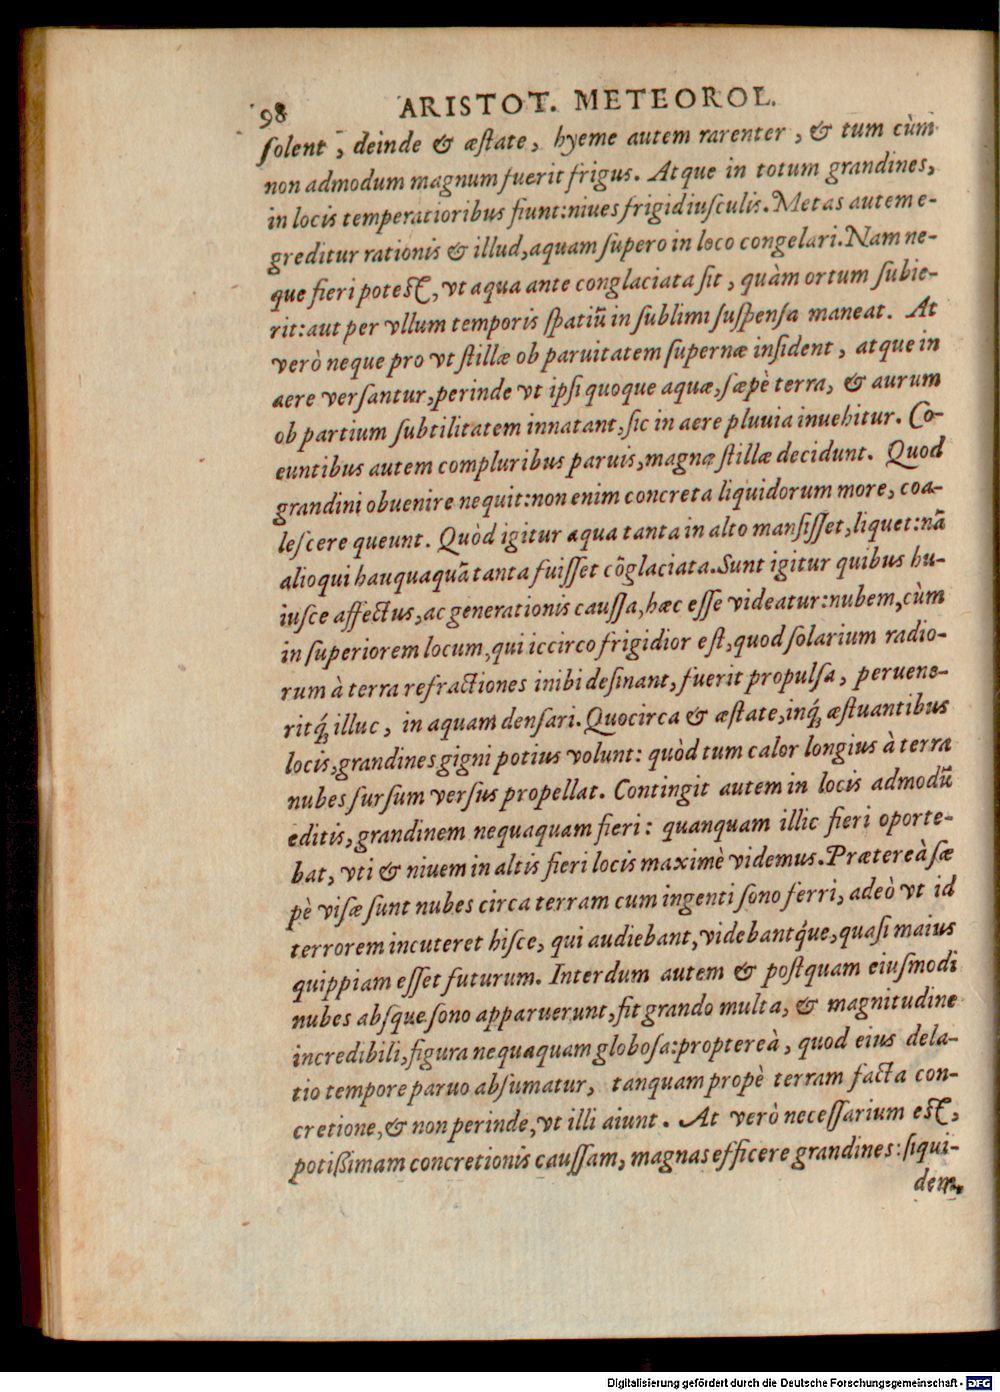 98 ARISTOT. METEOROL.
ſolent, deinde & æſtate, hyeme autem rarenter, & tum cùm
non admodum magnum fuerit frigus. Atque in totum grandines,
in locis temperatioribus fiunt: niues frigidiuſculis. Metas autem e-
greditur rationis & illud, aquam ſupero in loco congelari. Nam ne-
que fieri poteſt, vt aqua ante conglaciata ſit, quàm ortum ſubie-
rit: aut per vllum temporis ſpatiũ in ſublimi ſuſpenſa maneat. At
verò neque pro vt ſtillæ ob paruitatem ſupernæ inſident, atque in
aere verſantur, perinde vt ipſi quoque aquæ, ſæpè terra, & aurum
ob partium ſubtilitatem innatant, ſic in aere pluuia inuehitur. Co-
euntibus autem compluribus paruis, magnæ ſtillæ decidunt. Quod
grandini obuenire nequit: non enim concreta liquidorum more, coa-
leſcere queunt. Quòd igitur aqua tanta in alto manſiſſet, liquet: nã
alioqui hauquaquã tanta fuiſſet cõglaciata. Sunt igitur quibus hu-
iuſce affectus, ac generationis cauſſa, hæc eſſe videatur: nubem, cùm
in ſuperiorem locum, qui iccirco frigidior eſt, quod ſolarium radio-
rum à terra refractiones inibi deſinant, fuerit propulſa, peruene-
ritq́; illuc, in aquam denſari. Quocirca & æſtate, inq́; æſtuantibus
locis, grandines gigni potius volunt: quòd tum calor longius à terra
nubes ſurſum verſus propellat. Contingit autem in locis admodũ
editis, grandinem nequaquam fieri: quanquam illic fieri oporte-
bat, vti & niuem in altis fieri locis maximè videmus. Prætereà ſæ
pè viſæ ſunt nubes circa terram cum ingenti ſono ferri, adeò vt id
terrorem incuteret hiſce, qui audiebant, videbantq́ue, quaſi maius
quippiam eſſet futurum. Interdum autem & poſtquam eiuſmodi
nubes abſque ſono apparuerunt, fit grando multa, & magnitudine
incredibili, figura nequaquam globoſa: proptereà, quod eius dela-
tio tempore paruo abſumatur, tanquam propè terram facta con-
cretione, & non perinde, vt illi aiunt. At verò neceſſarium eſt,
potißimam concretionis cauſſam, magnas efficere grandines: ſiqui-
dem,
Digitalisierung gefördert durch die Deutsche Forschungsgemeinschaft - DFG